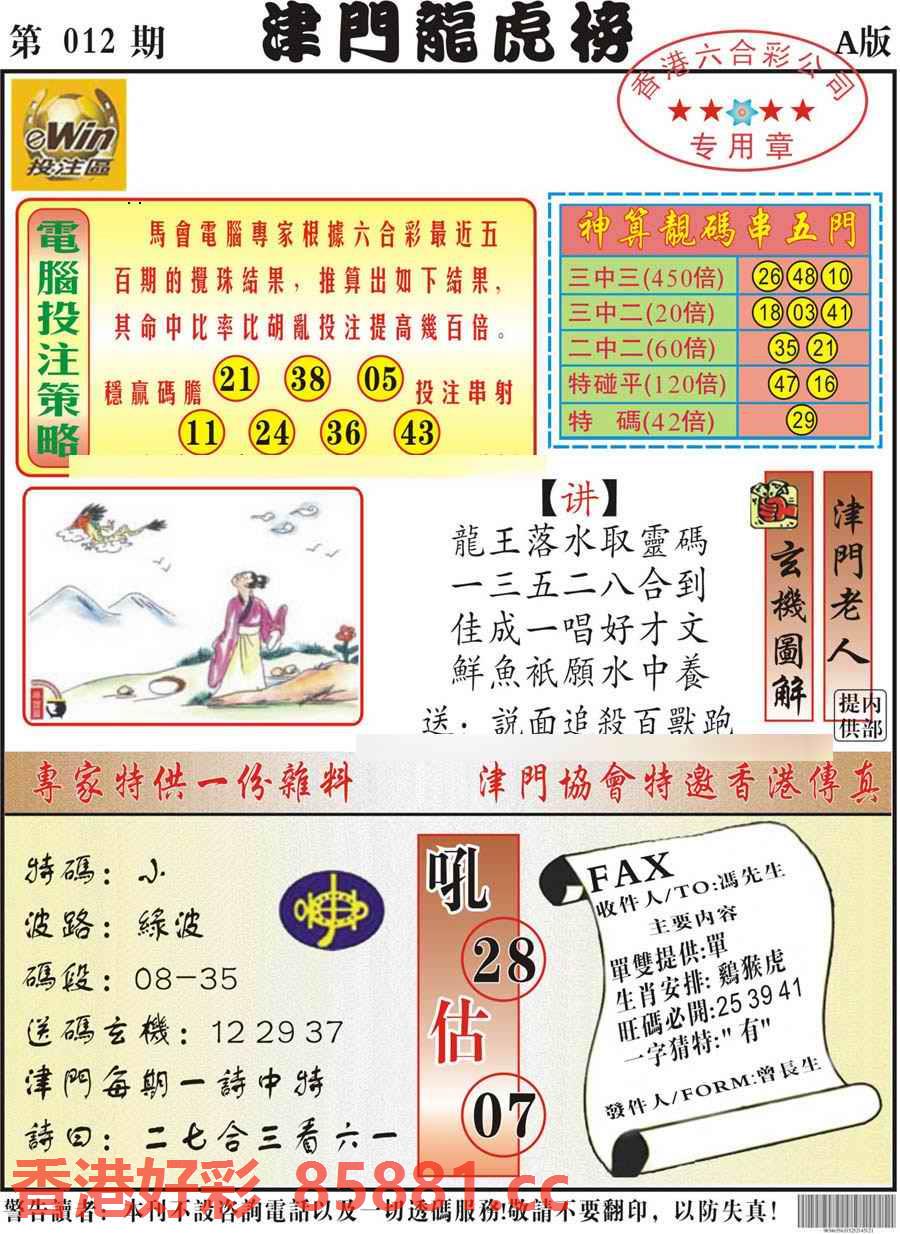 第 012 期
津門龍虎榜
A版
香港六合彩公司
专用章
eWin
投注區
電腦投注策略
馬會電腦專家根據六合彩最近五
百期的攪珠結果，推算出如下結果，
其命中比率比胡亂投注提高幾百倍。
穩贏碼膽 21 38 05 投注串射
11 24 36 43
神算靚碼串五門
三中三(450倍) 26 48 10
三中二(20倍) 18 03 41
二中二(60倍) 35 21
特碰平(120倍) 47 16
特 碼(42倍) 29
【讲】
龍王落水取靈碼
一三五二八合到
佳成一唱好才文
鮮魚衹願水中養
送：説面追殺百獸跑
玄機圖解
津門老人
内部提供
專家特供一份雜料
津門協會特邀香港傳真
特碼：小
波路：綠波
碼段：08-35
送碼玄機：12 29 37
津門每期一詩中特
詩曰：二七合三看六一
吼
28
估
07
FAX
收件人/TO:馮先生
主要内容
單雙提供:單
生肖安排: 鷄猴虎
旺碼必開:25 39 41
一字猜特:"有"
發件人/FORM:曾長生
香港好彩 85881.cc
警告讀者：本刊不設咨詢電話以及一切透碼服務!敬請不要翻印，以防失真!